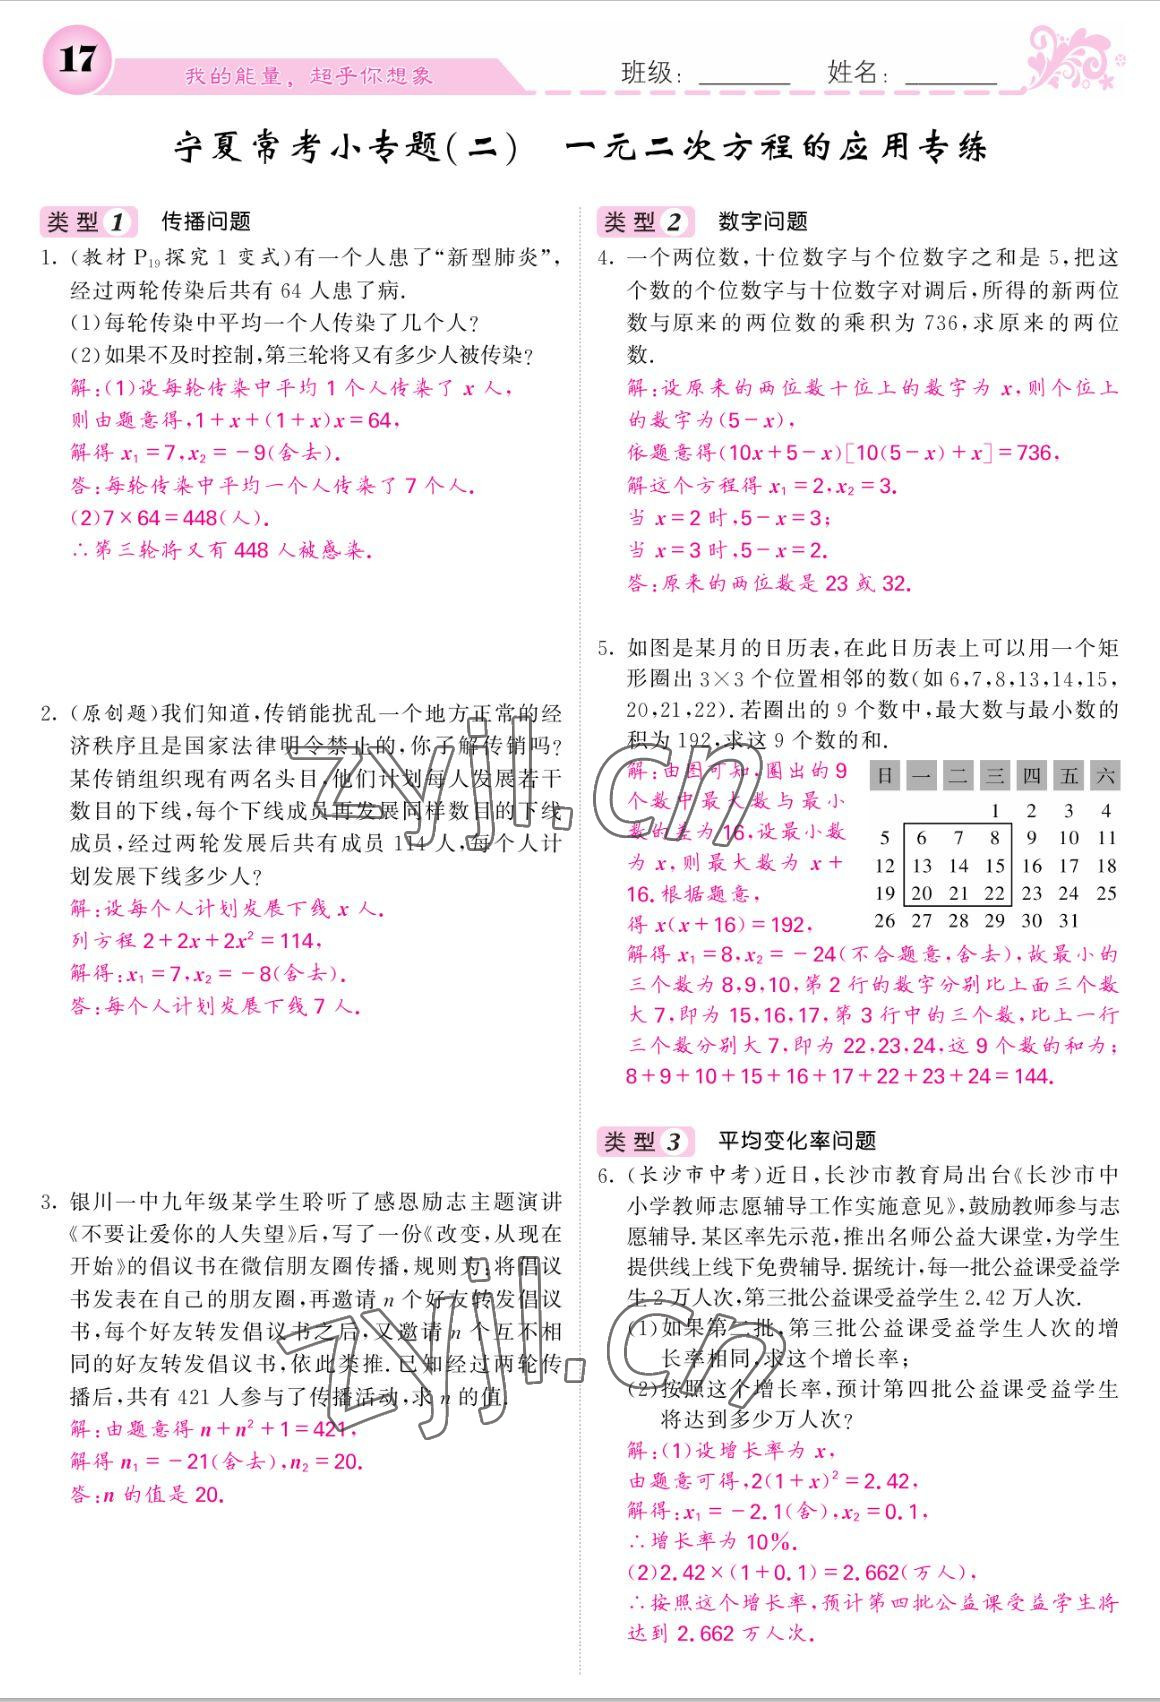 17
我的能量，超乎你想象
班级：
姓名：
宁夏常考小专题(二)　一元二次方程的应用专练
类型1　传播问题
1. (教材P19探究1变式)有一个人患了“新型肺炎”，
经过两轮传染后共有64人患了病.
(1)每轮传染中平均一个人传染了几个人?
(2)如果不及时控制,第三轮将又有多少人被传染?
解:(1)设每轮传染中平均1个人传染了x人,
则由题意得,1+x+(1+x)x=64,
解得x₁=7,x₂=-9(舍去).
答:每轮传染中平均一个人传染了7个人.
(2)7×64=448(人).
∴第三轮将又有448人被感染.
2. (原创题)我们知道,传销能扰乱一个地方正常的经
济秩序且是国家法律明令禁止的,你了解传销吗?
某传销组织现有两名头目,他们计划每人发展若干
数目的下线,每个下线成员再发展同样数目的下线
成员,经过两轮发展后共有成员114人,每个人计
划发展下线多少人?
解:设每个人计划发展下线x人.
列方程2+2x+2x²=114,
解得:x₁=7,x₂=-8(舍去).
答:每个人计划发展下线7人.
3. 银川一中九年级某学生聆听了感恩励志主题演讲
《不要让爱你的人失望》后,写了一份《改变,从现在
开始》的倡议书在微信朋友圈传播,规则为:将倡议
书发表在自己的朋友圈,再邀请n个好友转发倡议
书,每个好友转发倡议书之后,又邀请n个互不相
同的好友转发倡议书,依此类推.已知经过两轮传
播后,共有421人参与了传播活动,求n的值.
解:由题意得n+n²+1=421,
解得n₁=-21(舍去),n₂=20.
答:n的值是20.
类型2　数字问题
4. 一个两位数,十位数字与个位数字之和是5,把这
个数的个位数字与十位数字对调后,所得的新两位
数与原来的两位数的乘积为736,求原来的两位
数.
解:设原来的两位数十位上的数字为x,则个位上
的数字为(5-x),
依题意得(10x+5-x)[10(5-x)+x]=736,
解这个方程得x₁=2,x₂=3.
当x=2时,5-x=3;
当x=3时,5-x=2.
答:原来的两位数是23或32.
5. 如图是某月的日历表,在此日历表上可以用一个矩
形圈出3×3个位置相邻的数(如6,7,8,13,14,15,
20,21,22).若圈出的9个数中,最大数与最小数的
积为192,求这9个数的和.
解:由图可知,圈出的9
个数中最大数与最小
数的差为16,设最小数
为x,则最大数为x+
16.根据题意,
得x(x+16)=192,
日 一 二 三 四 五 六
1 2 3 4
5 6 7 8 9 10 11
12 13 14 15 16 17 18
19 20 21 22 23 24 25
26 27 28 29 30 31
解得x₁=8,x₂=-24(不合题意,舍去),故最小的
三个数为8,9,10,第2行的数字分别比上面三个数
大7,即为15,16,17,第3行中的三个数,比上一行
三个数分别大7,即为22,23,24,这9个数的和为:
8+9+10+15+16+17+22+23+24=144.
类型3　平均变化率问题
6. (长沙市中考)近日,长沙市教育局出台《长沙市中
小学教师志愿辅导工作实施意见》,鼓励教师参与志
愿辅导.某区率先示范,推出名师公益大课堂,为学生
提供线上线下免费辅导.据统计,每一批公益课受益学
生2万人次,第三批公益课受益学生2.42万人次.
(1)如果第二批,第三批公益课受益学生人次的增
长率相同,求这个增长率;
(2)按照这个增长率,预计第四批公益课受益学生
将达到多少万人次?
解:(1)设增长率为x,
由题意可得,2(1+x)²=2.42,
解得:x₁=-2.1(舍),x₂=0.1,
∴增长率为10%.
(2)2.42×(1+0.1)=2.662(万人),
∴按照这个增长率,预计第四批公益课受益学生将
达到2.662万人次.
zyjl.cn
zyjl.cn